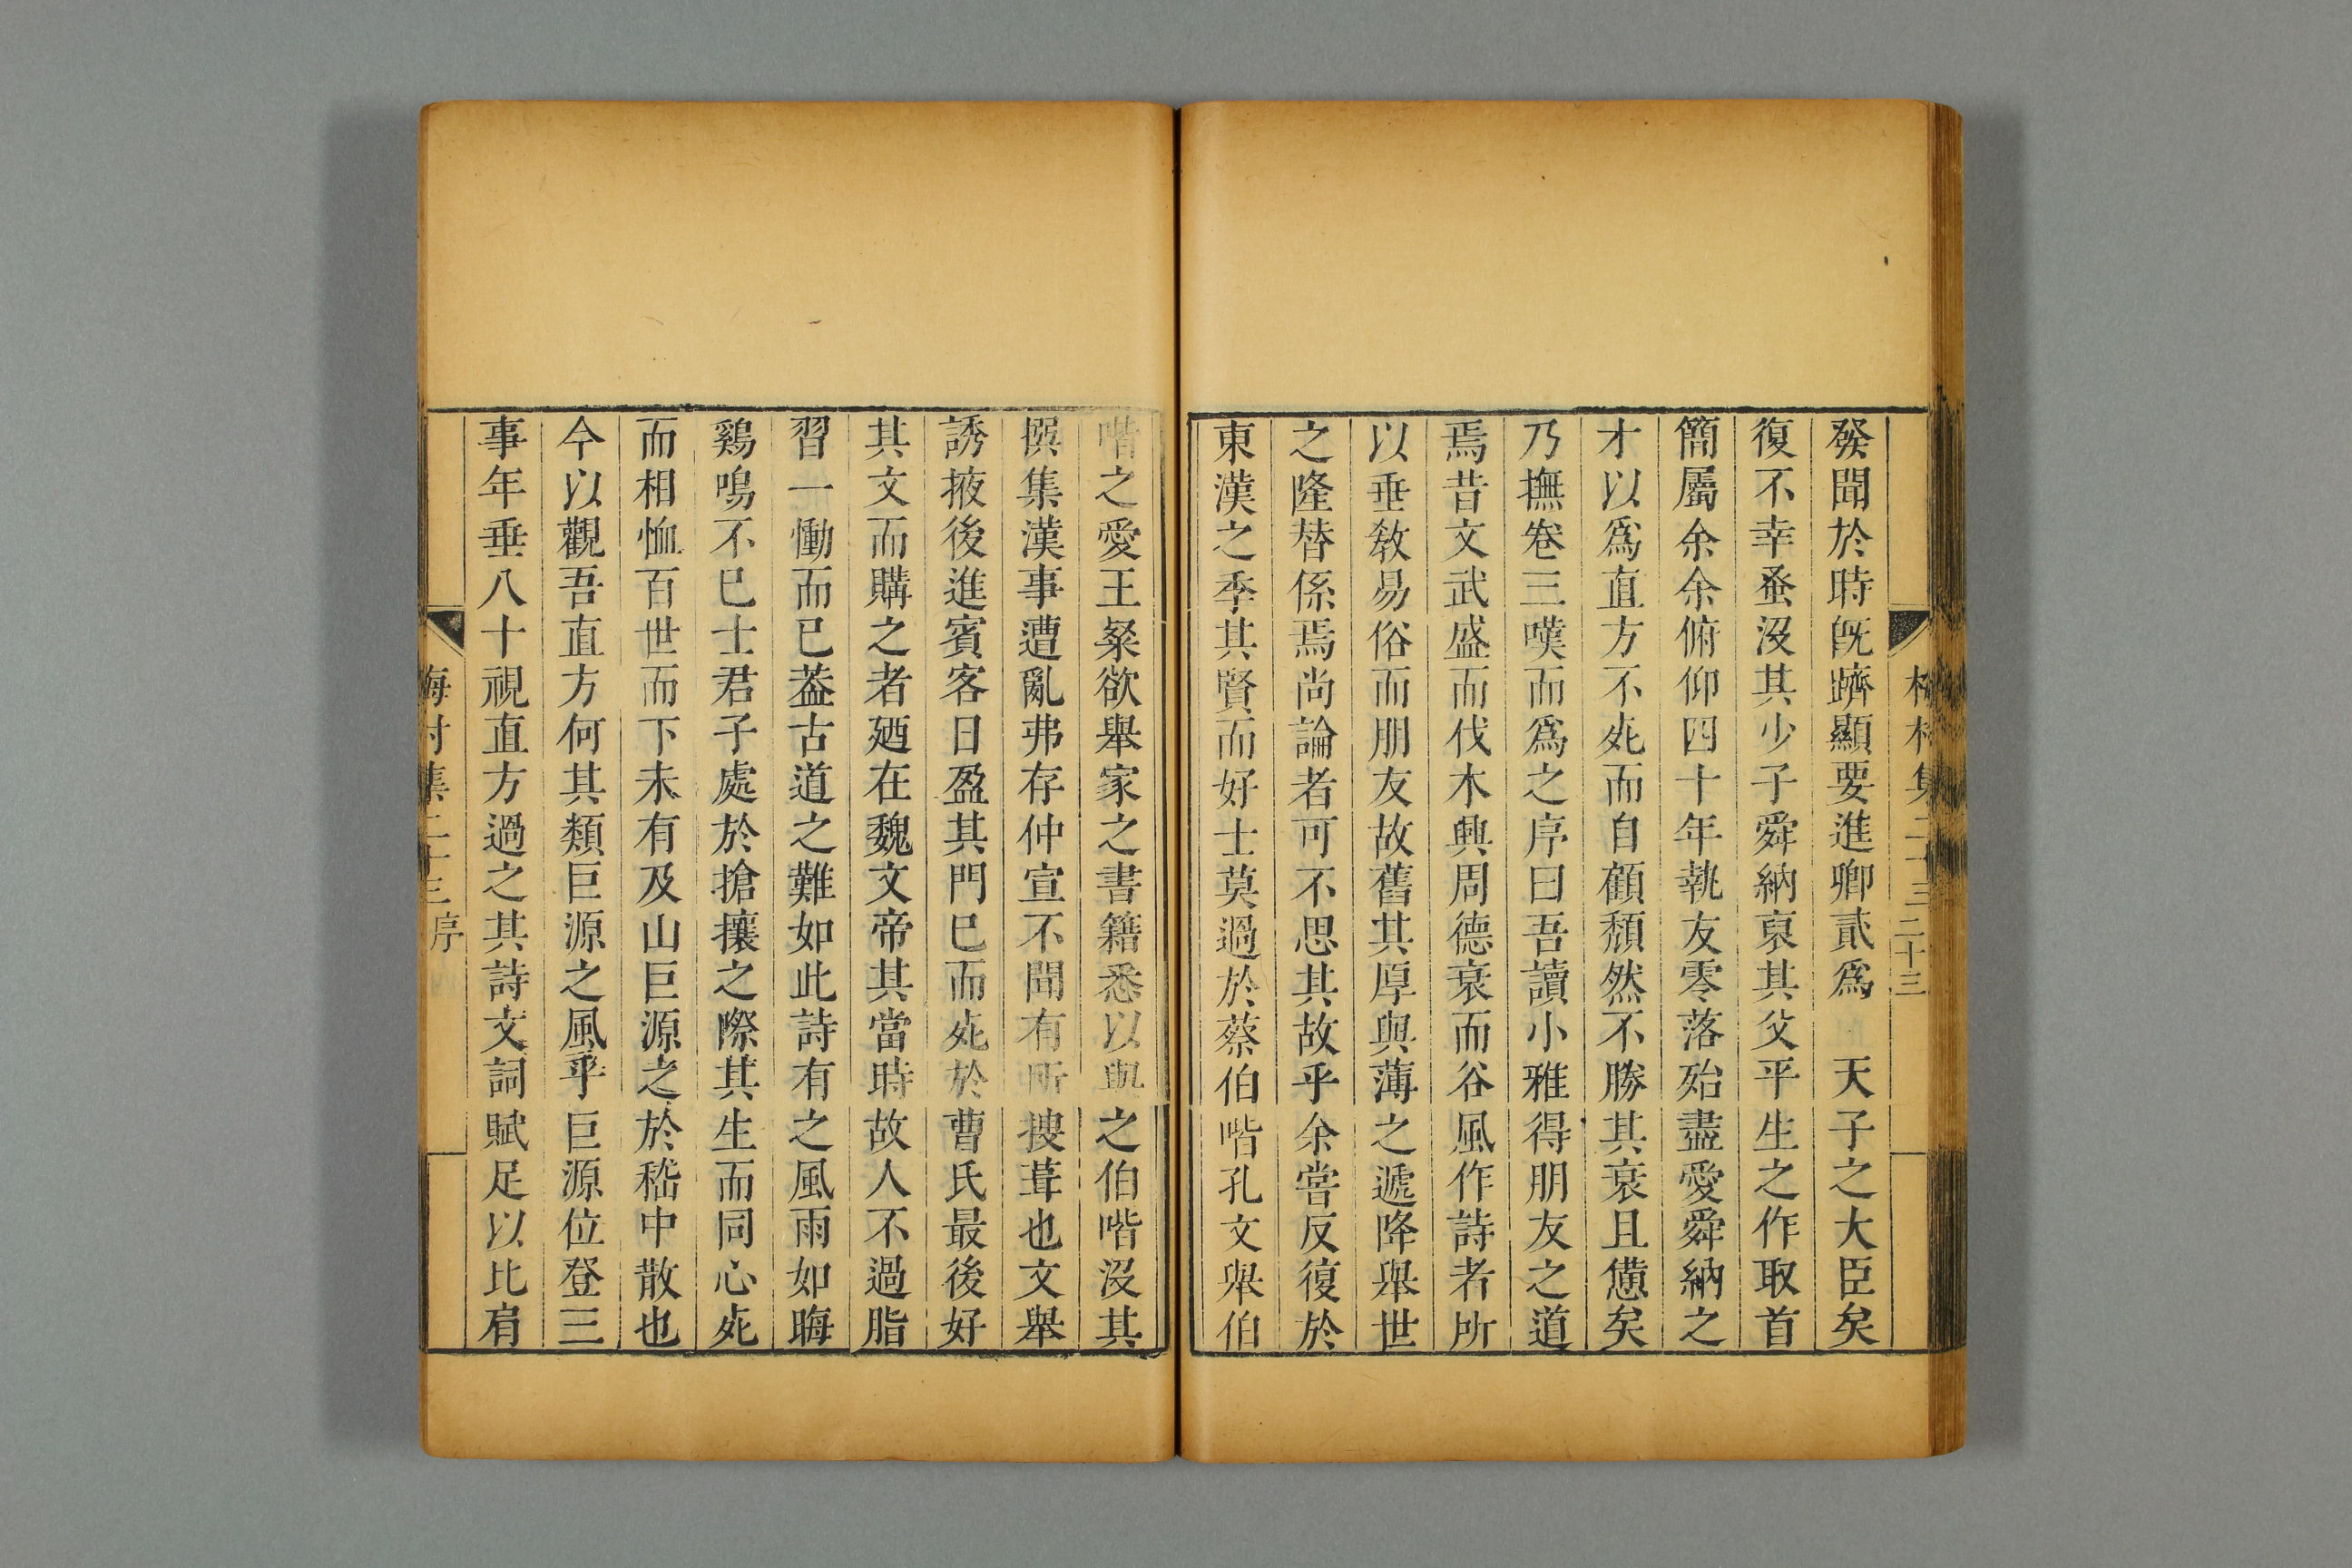 發聞於時旣躋顯要進卿貳爲　天子之大臣矣
復不幸蚤沒其少子舜納裒其父平生之作取首
簡屬余余俯仰四十年執友零落殆盡愛舜納之
才以爲直方不死而自顧頹然不勝其衰且憊矣
乃撫卷三嘆而爲之序曰吾讀小雅得朋友之道
焉昔文武盛而伐木興周德衰而谷風作詩者所
以垂敎易俗而朋友故舊其厚與薄之遞降舉世
之隆替係焉尚論者可不思其故乎余嘗反復於
東漢之季其賢而好士莫過於蔡伯喈孔文舉伯
喈之愛王粲欲舉家之書籍悉以與之伯喈沒其
撰集漢事遭亂弗存仲宣不聞有所搜葺也文舉
誘掖後進賓客日盈其門已而死於曹氏最後好
其文而購之者廼在魏文帝其當時故人不過脂
習一慟而已葢古道之難如此詩有之風雨如晦
鷄鳴不已士君子處於搶攘之際其生而同心死
而相恤百世而下未有及山巨源之於嵇中散也
今以觀吾直方何其類巨源之風乎巨源位登三
事年垂八十視直方過之其詩文詞賦足以比肩
梅村集二十三 二十三
梅村集二十三 序